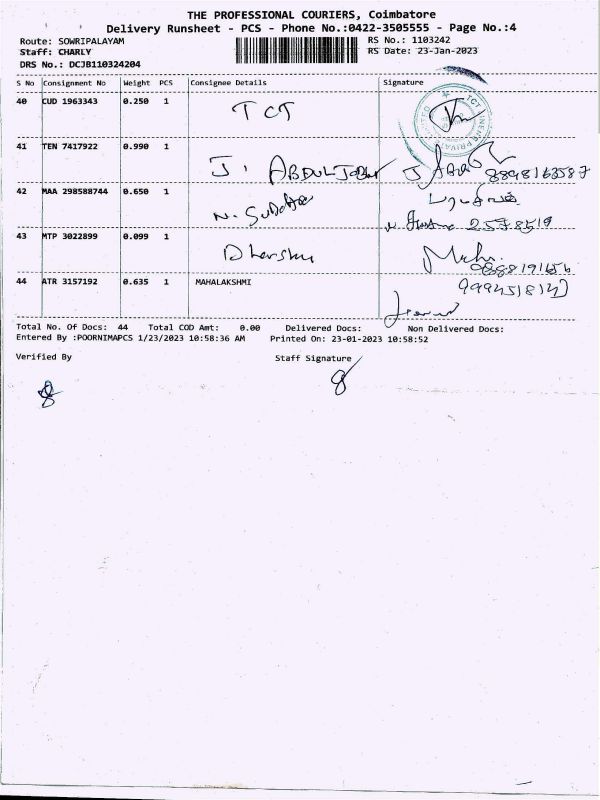 THE PROFESSIONAL COURIERS, Coimbatore
Delivery Runsheet - PCS - Phone No.:0422-3505555 - Page No.:4
Route: SOWRIPALAYAM RS No.: 1103242
Staff: CHARLY RS Date: 23-Jan-2023
DRS No.: DCJB110324204
S No Consignment No Weight PCS Consignee Details Signature
40 CUD 1963343 0.250 1 TCT
41 TEN 7417922 0.990 1 J. ABDUL JABBAR
42 MAA 298588744 0.650 1 N.
43 MTP 3022899 0.099 1
44 ATR 3157192 0.635 1 MAHALAKSHMI
Total No. Of Docs: 44 Total COD Amt: 0.00 Delivered Docs: Non Delivered Docs:
Entered By :POORNIMAPCS 1/23/2023 10:58:36 AM Printed On: 23-01-2023 10:58:52
Verified By Staff Signature